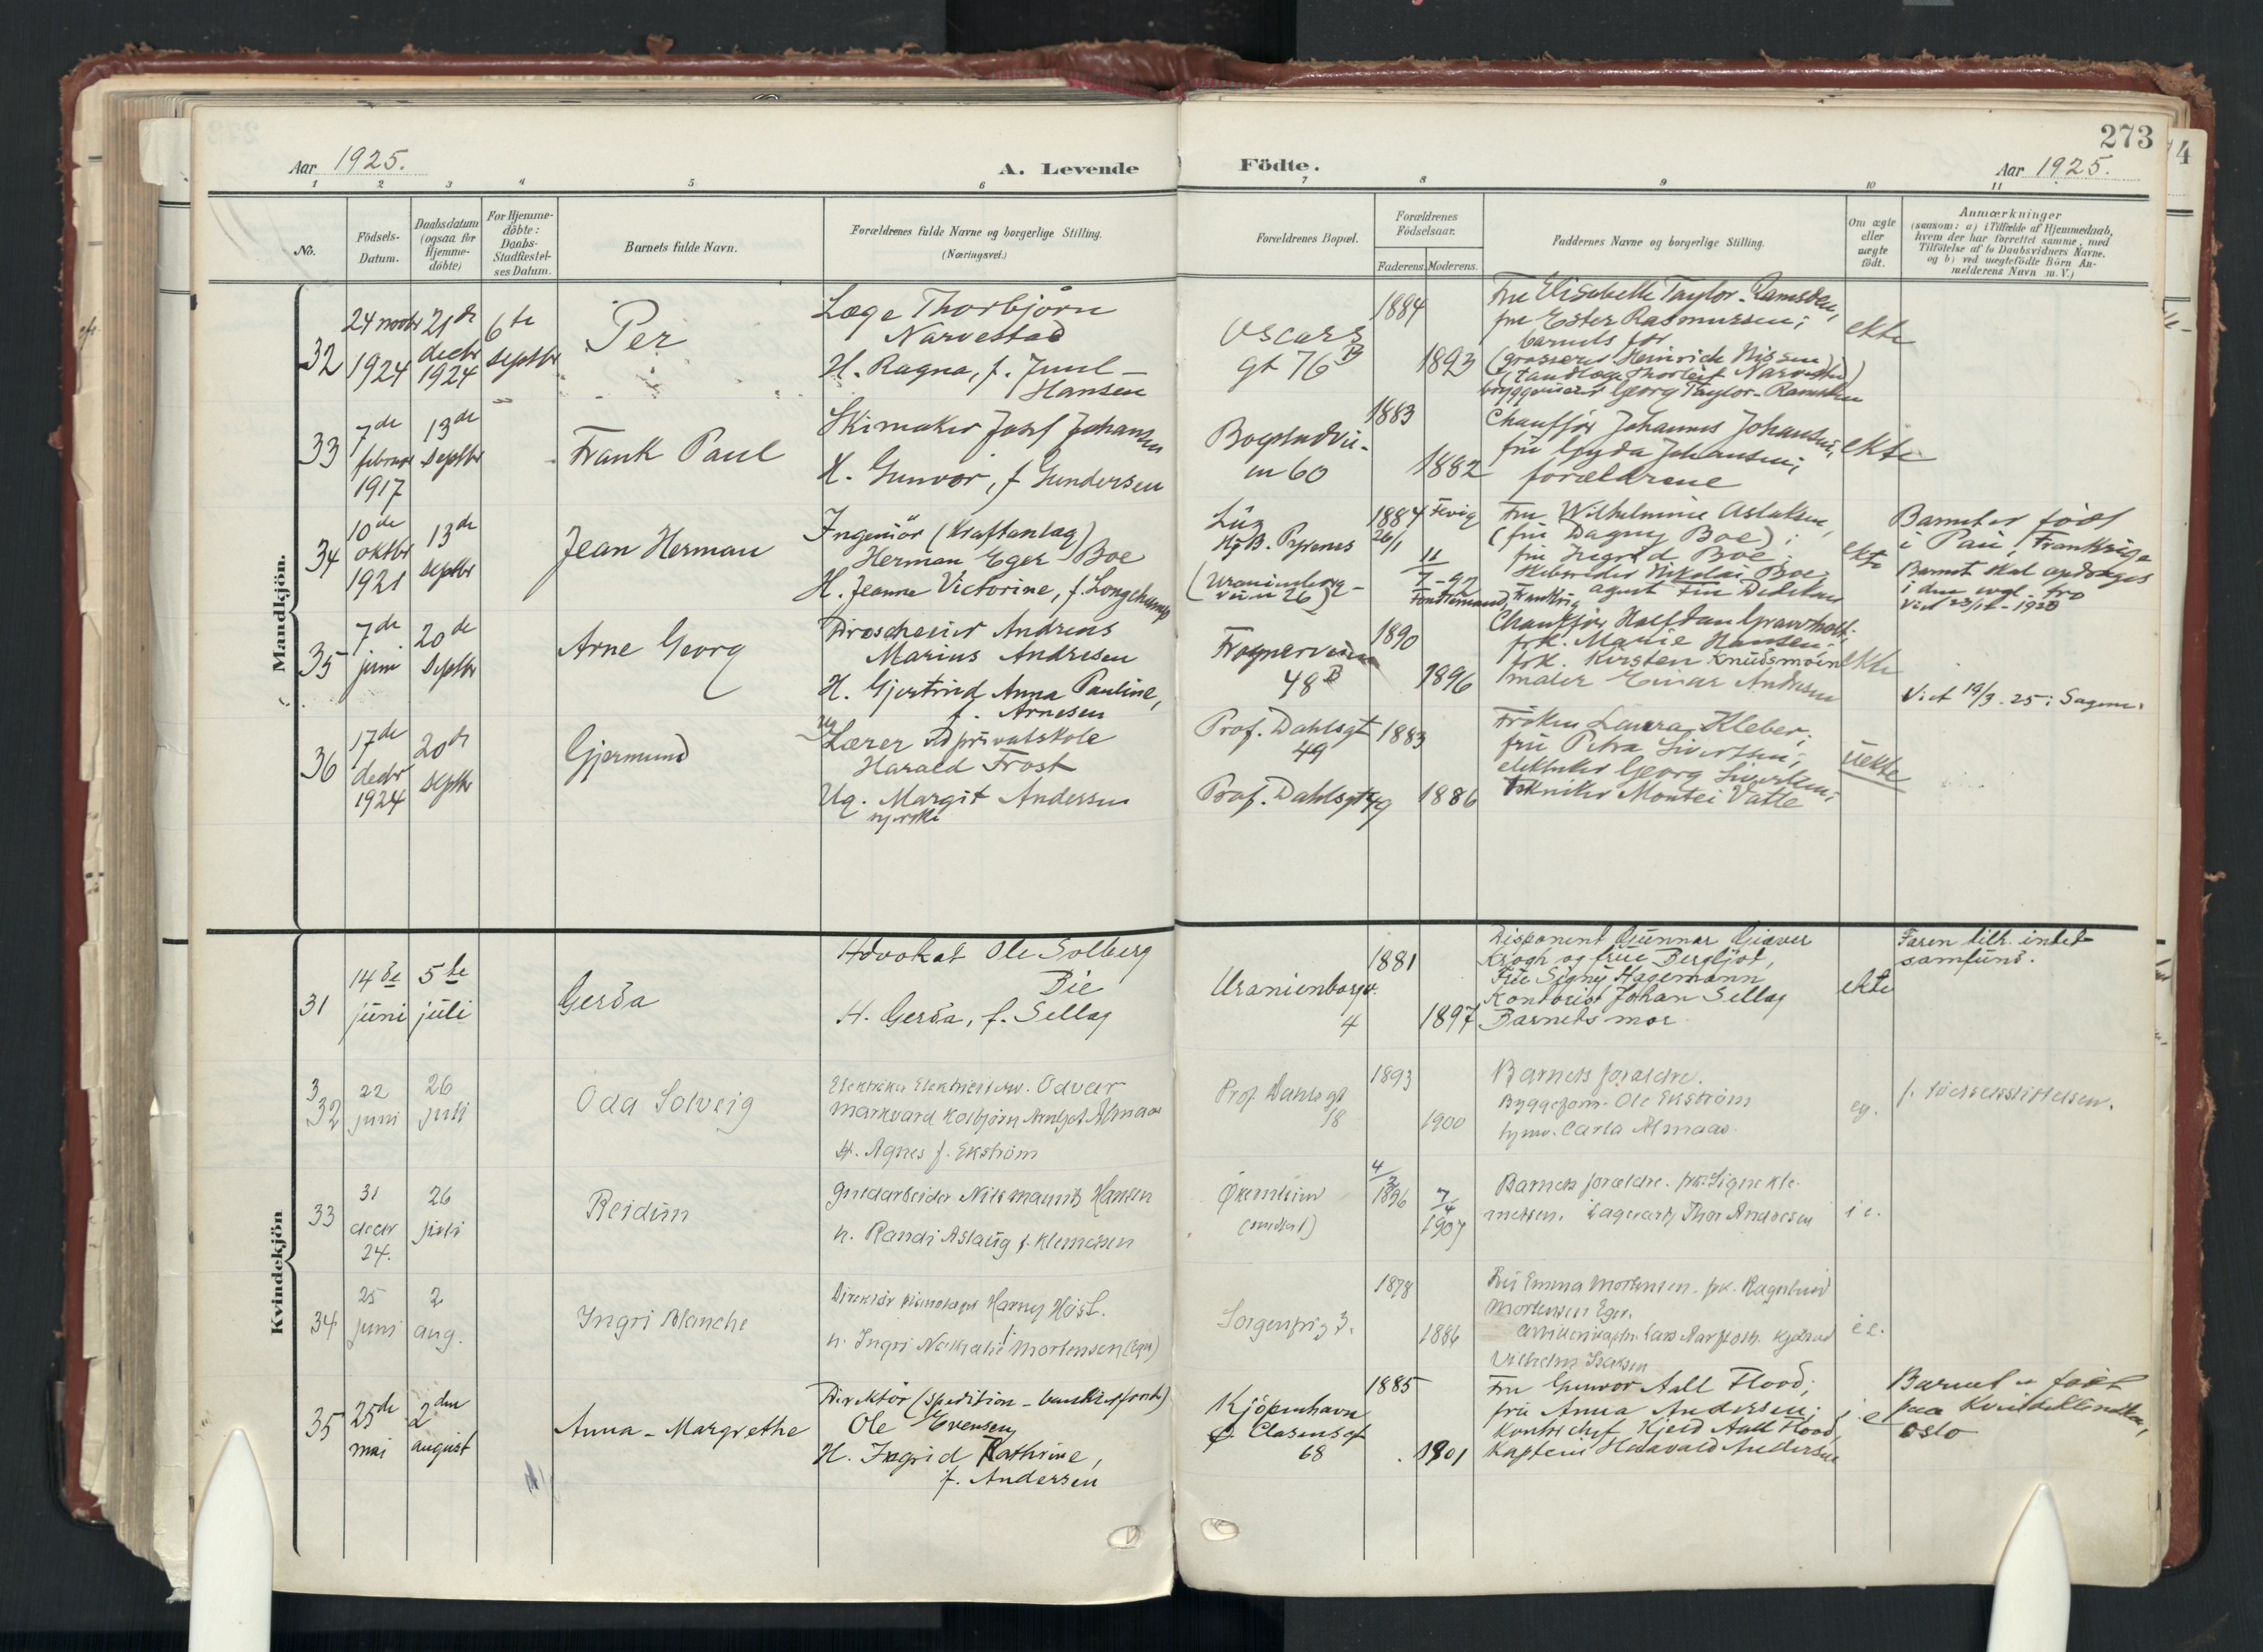 273
4
Aar 1925.
A. Levende Födte.
Aar 1925.
1 2 3 4 5 6 7 8 9 10 11
No.
Födsels-
Datum.
Daabsdatum
(ogsaa for
Hjemme-
döbte)
For Hjemme-
döbte:
Daabs-
Stadfæstel-
ses Datum.
Barnets fulde Navn.
Forældrenes fulde Navne og borgerlige Stilling.
(Næringsvei.)
Forældrenes Bopæl.
Forældrenes
Födselsaar.
Faderens. Moderens.
Faddernes Navne og borgerlige Stilling.
Om ægte
eller
uægte
födt.
Anmærkninger
(saasom: a) i Tilfælde af Hjemmedaab,
hvem der har forrettet samme, med
Tilföielse af to Daabsvidners Navne,
og b) ved uegtefödte Börn An-
melderens Navn m. V.)
Mandkjön.
32
24 novbr
1924
21de
decbr
1924
6te
septbr
Per
Læge Thorbjörn
Narvestad
H. Ragna, f. Juul-
Hansen
Oscars
gt 76B
1884
1893
Fru Elisabeth Taylor-Ramsden,
fru Ester Rasmussen;
barnets far
(grosserer Heinrich Nissen)
(tandlæge Thorleif Narvestad)
bryggerieier Georg Taylor-Ramsden
ekte
33
7de
februar
1917
13de
septbr
Frank Paul
Skimaker Josef Johansen
H. Gunvor, f. Gundersen
Bogstadvei-
en 60
1883
1882
Chauffør Johannes Johansen,
fru Gyda Johansen;
forældrene
ekte
34
10de
oktbr
1921
13de
septbr
Jean Herman
Ingeniör (Kraftanlæg)
Herman Eger Boe
H. Jeanne Victorine, f. Longchamp
Luz
Hp B. Pyrenes
(Uranienborg-
veien 26)
1884 Fevig
26/1
11
7-97
Frankrig
Fru Wilhelmine Aslaksen,
(fru Dagny Boe);
fru Ingrid Boe;
Skibsreder Nikolai Boe
agent
ekte
Barnet er født
i Pau, Frankrige
Barnet skal opdrages
i den evgl. tro
35
7de
juni
20de
septbr
Arne Georg
Droscheeier Andreas
Marius Andresen
H. Gjertrud Anna Pauline,
f. Arnesen
Frognerveien
48B
1890
1896
Chauffør Halfdan
frk. Marie Hansen;
frk. Kirsten Knudsmoen
maler Einar Andresen
ekte
Viet 19/9.25 i Sagene.
36
17de
decbr
1924
20de
septbr
Gjermund
Ug
Lærer ved privatskole
Harald Frost
Ug. Margit Andersen
syerske
Prof. Dahlsgt
49
Prof. Dahlsgt 49
1883
1886
Fröken Laura Kleber;
fru Petra Sivertsen;
elektriker Georg Sivertsen;
tekniker Montei Vatle
uekte
Kvindekjön
31
14de
juni
5te
juli
Gerda
Advokat Ole Solberg
Die
H. Gerda, f. Sellag
Uranienborgv.
4
1881
1897
Disponent Gunnar Giæver
Krogh og frue Bergljot,
Frue Signy Hagemann
Kontorist Johan Sellag
Barnets mor
ekte
Faren tilh. intet
samfund.
32
22
juni
26
juli
Oda Solveig
Elektriker Odvar
Markvard Kolbjörn Arnljot Almaas
H. Agnes f. Ekström
Prof. Dahls gt
18
1893
1900
Barnets forældre.
Byggeform. Ole Ekström
Carla Almaas.
eg.
f. Födselsstiftelsen.
33
31
decbr
24.
26
juli
Reidun
Nils Mauritz Hansen
h. Randi Aslaug f. Klemetsen
4/3
1896
7/4
1907
Barnets forældre. frk. Signe Kle-
metsen. Lagerarb. Thor Andresen
i e.
34
25
juni
2
aug.
Ingri Blanche
Direktör Harry Höst.
h. Ingri Nathalie f. Mortensen (Eger)
Sorgenfrig 3.
1878
1886
Fru Emma Mortensen. frk. Ragnhild
Mortensen Eger.
Vilhelm Isaksen
i e.
35
25de
mai
2den
august
Anna-Margrethe
Direktör (spedition-
Ole Evensen
H. Ingrid Kathrine,
f. Andersen
Kjöpenhavn
Ø. Clasensgt
68
1885
1901
Fru Gunvor Aall Flood;
fru Anna Andersen;
kontorchef Kjeld Aall Flood,
kaptein Haavald Andersen
i e
Barnet er født
paa Kvindeklinikken,
Oslo